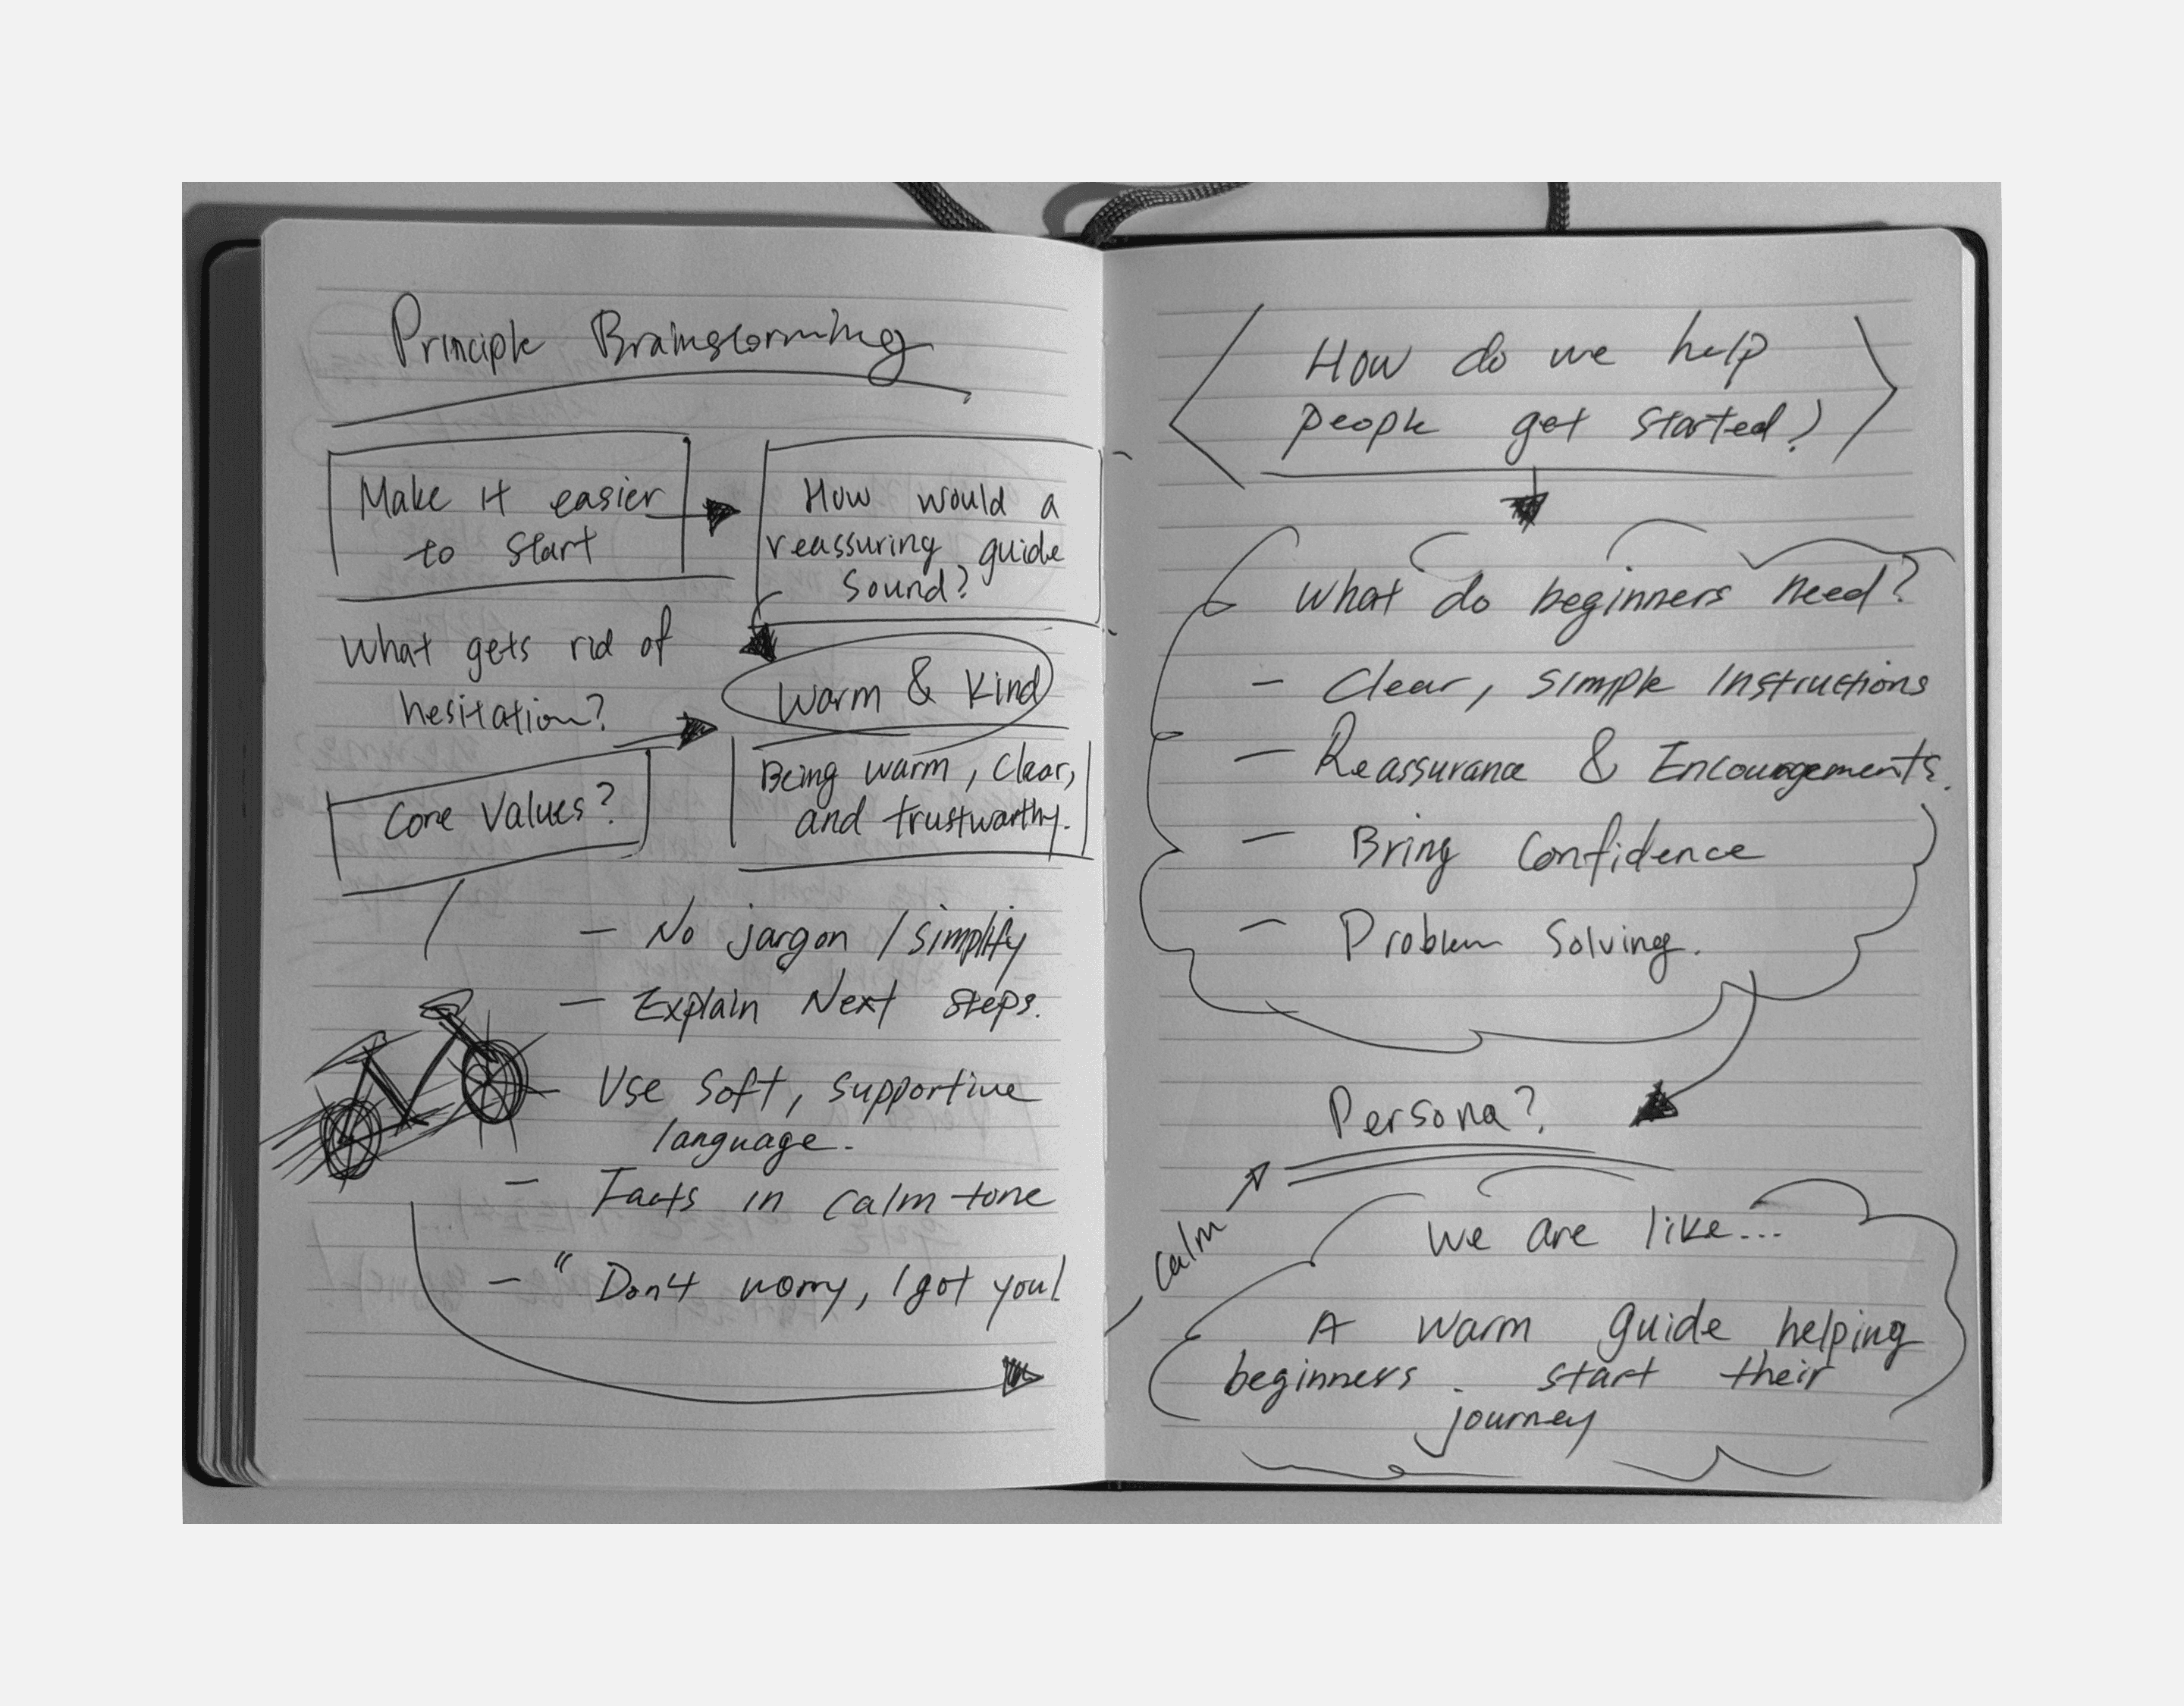 Principle Brainstorming
Make it easier
to start
How would a
reassuring guide
sound?
What gets rid of
hesitation?
Warm & Kind
Core Values?
Being warm, clear,
and trustworthy.
- No jargon / simplify
- Explain Next steps.
- Use soft, supportive
language.
- Facts in calm tone
- "Don't worry, I got you!
How do we help
people get started?
What do beginners need?
- Clear, simple instructions
- Reassurance & Encouragements.
- Bring Confidence
- Problem Solving.
Persona?
calm
We are like...
A warm guide helping
beginners. start their
journey